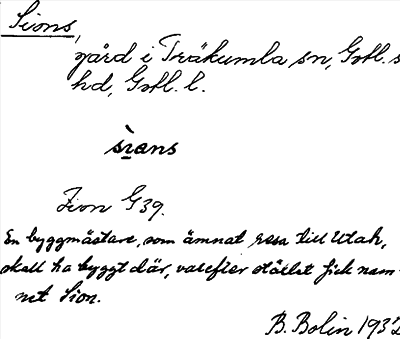 Sions,
gård i Träkumla sn, Gotl. s
hd, Gotl. l.
srans
Zion G 39.
En byggmästare, som ämnat resa till Utah,
skall ha byggt där, varefter stället fick nam-
net Sion.
B. Bolin 1932